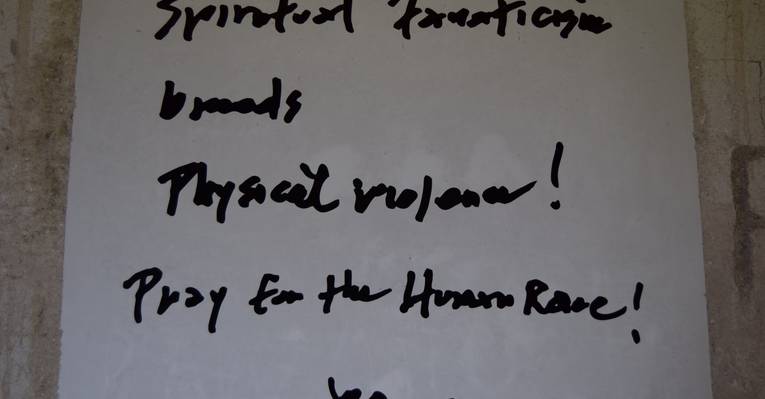 Spiritual fanaticism
breeds
Physical violence!
Pray for the Human Race!